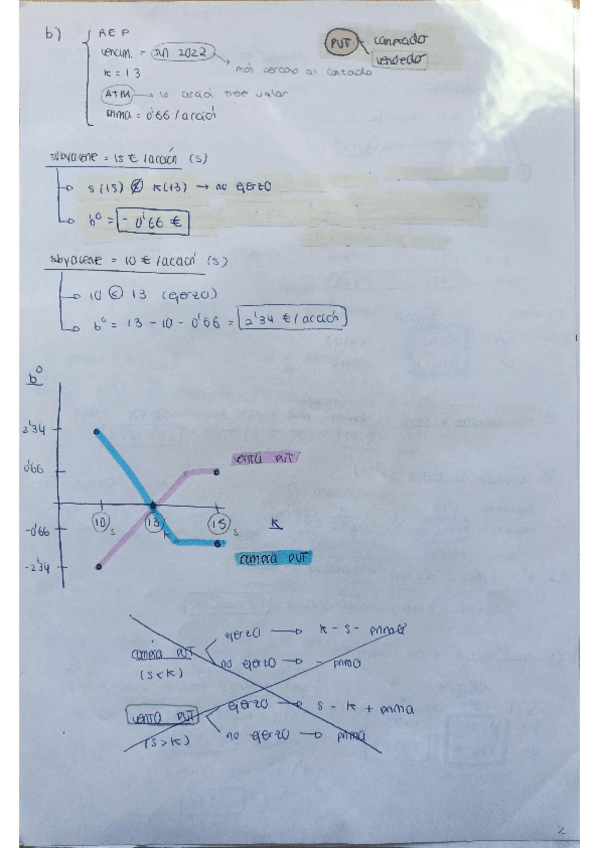 b)
REP
vencim. = jun 2022 → más cercano al contado
K = 13
ATM → la acción tiene valor
prima = 0'66 / acción
PUT
comprado
vendedo
subyacene = 15 € /acción (S)
S (15) K(13) → no ejerzo
bº = - 0'66 €
subyacene = 10 € /acción (S)
10 < 13 (ejerzo)
bº = 13 - 10 - 0'66 = 2'34 € /acción
bº
2'34
0'66
-0'66
-2'34
venta PUT
10 S
13 K
15 S
K
compra PUT
compra PUT
(S<K)
ejerzo → K - S - prima
no ejerzo → - prima
venta PUT
(S>K)
ejerzo → S - K + prima
no ejerzo → prima
2